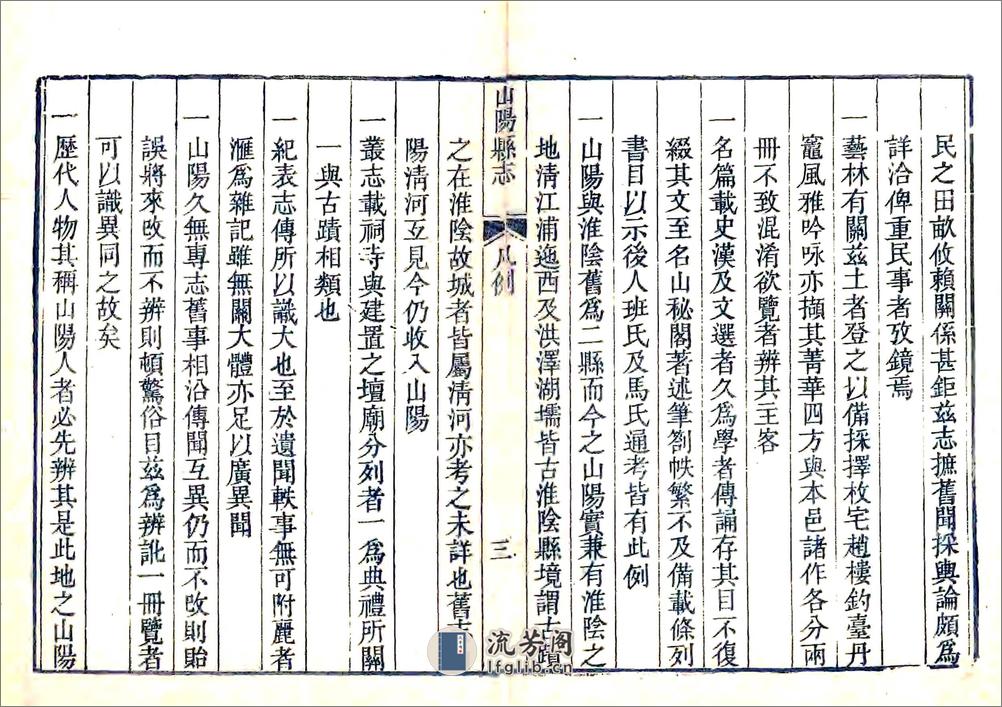 民之田畝攸賴關係甚鉅茲志摭舊聞採輿論頗爲
詳洽俾重民事者攷鏡焉
一藝林有關茲土者登之以備採擇枚宅趙樓釣臺丹
竈風雅吟咏亦擷其菁華四方與本邑諸作各分兩
冊不致混淆欲覽者辨其主客
一名篇載史漢及文選者久爲學者傳誦存其目不復
綴其文至名山秘閣著述筆劄帙繁不及備載條列
書目以示後人班氏及馬氏通考皆有此例
一山陽與淮陰舊爲二縣而今之山陽實兼有淮陰之
地清江浦迤西及洪澤湖壖皆古淮陰縣境謂古蹟
山陽縣志
凡例
三
之在淮陰故城者皆屬清河亦考之未詳也舊志
陽清河互見今仍收入山陽
一叢志載祠寺與建置之壇廟分列者一爲典禮所關
一與古蹟相類也
一紀表志傳所以識大也至於遺聞軼事無可附麗者
滙爲雜記雖無關大體亦足以廣異聞
一山陽久無專志舊事相沿傳聞互異仍而不攷則貽
誤將來攷而不辨則頓驚俗目茲爲辨訛一冊覽者
可以識異同之故矣
一歷代人物其稱山陽人者必先辨其是此地之山陽
流芳阁
lfglib.cn